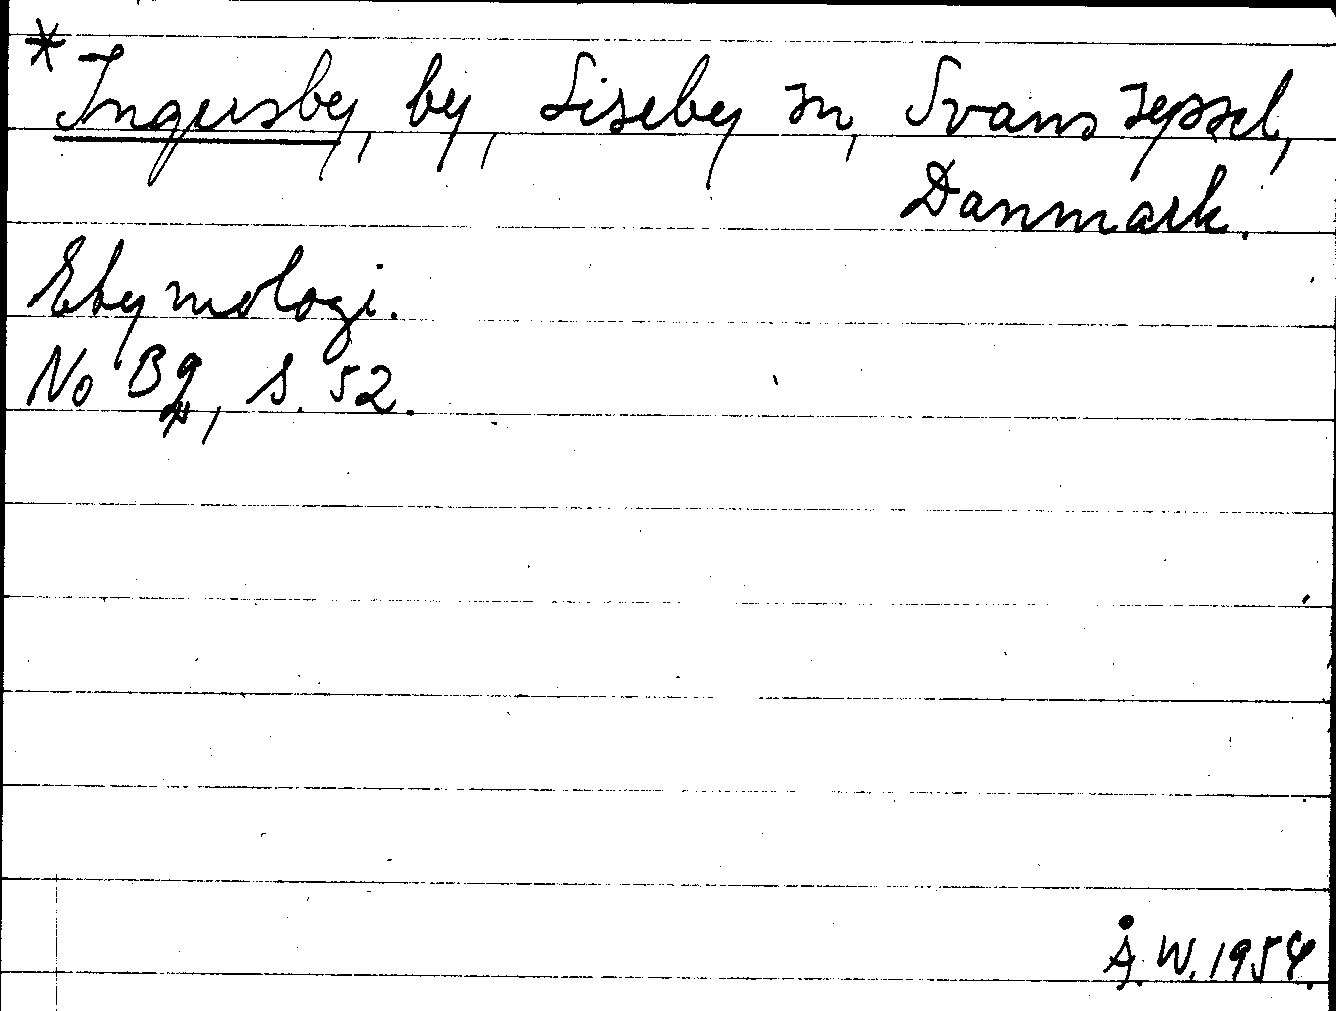 * Ingusby, by, Siseby sn, Svans syssel,
Danmark.
Etymologi.
NoB 9, s. 52.
Å.W. 1954.